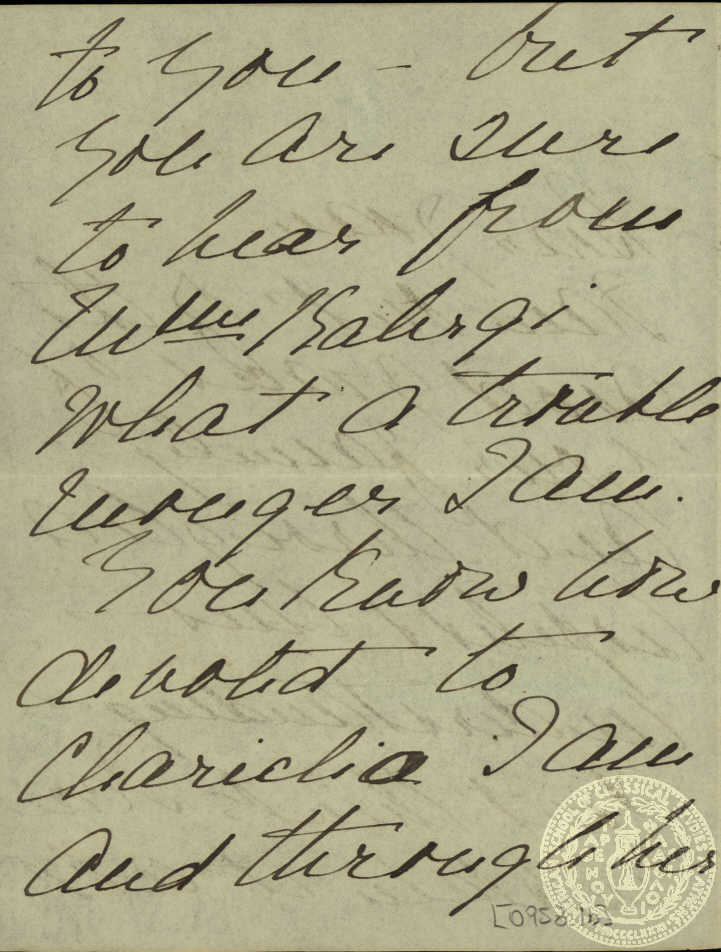 to you – but
you are sure
to hear from
Mme Kalergi
What a trouble
monger I am.
You know how
devoted to
Chariclia I am
and through her
[0958.11]